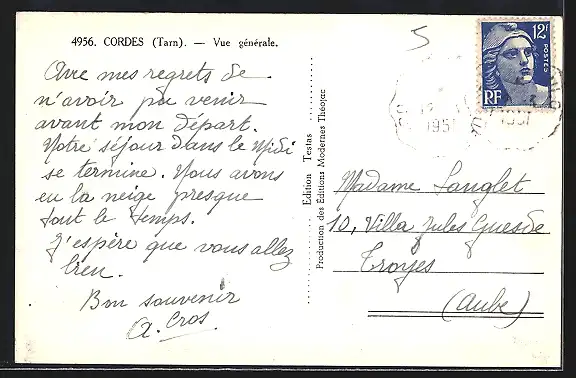 4956. CORDES (Tarn). — Vue générale.
Avec mes regrets de
n'avoir pu venir
avant mon départ.
Notre séjour dans le Midi
se termine. Nous avons
eu la neige presque
tout le temps.
J'espère que vous allez
bien.
Bon souvenir
A. Cros
Edition Testas
Production des Éditions Modernes Théojac
5
12F
POSTES
RF
1951
1951
Madame Langlet
10, Villa Jules Guesde
Troyes
(Aube)